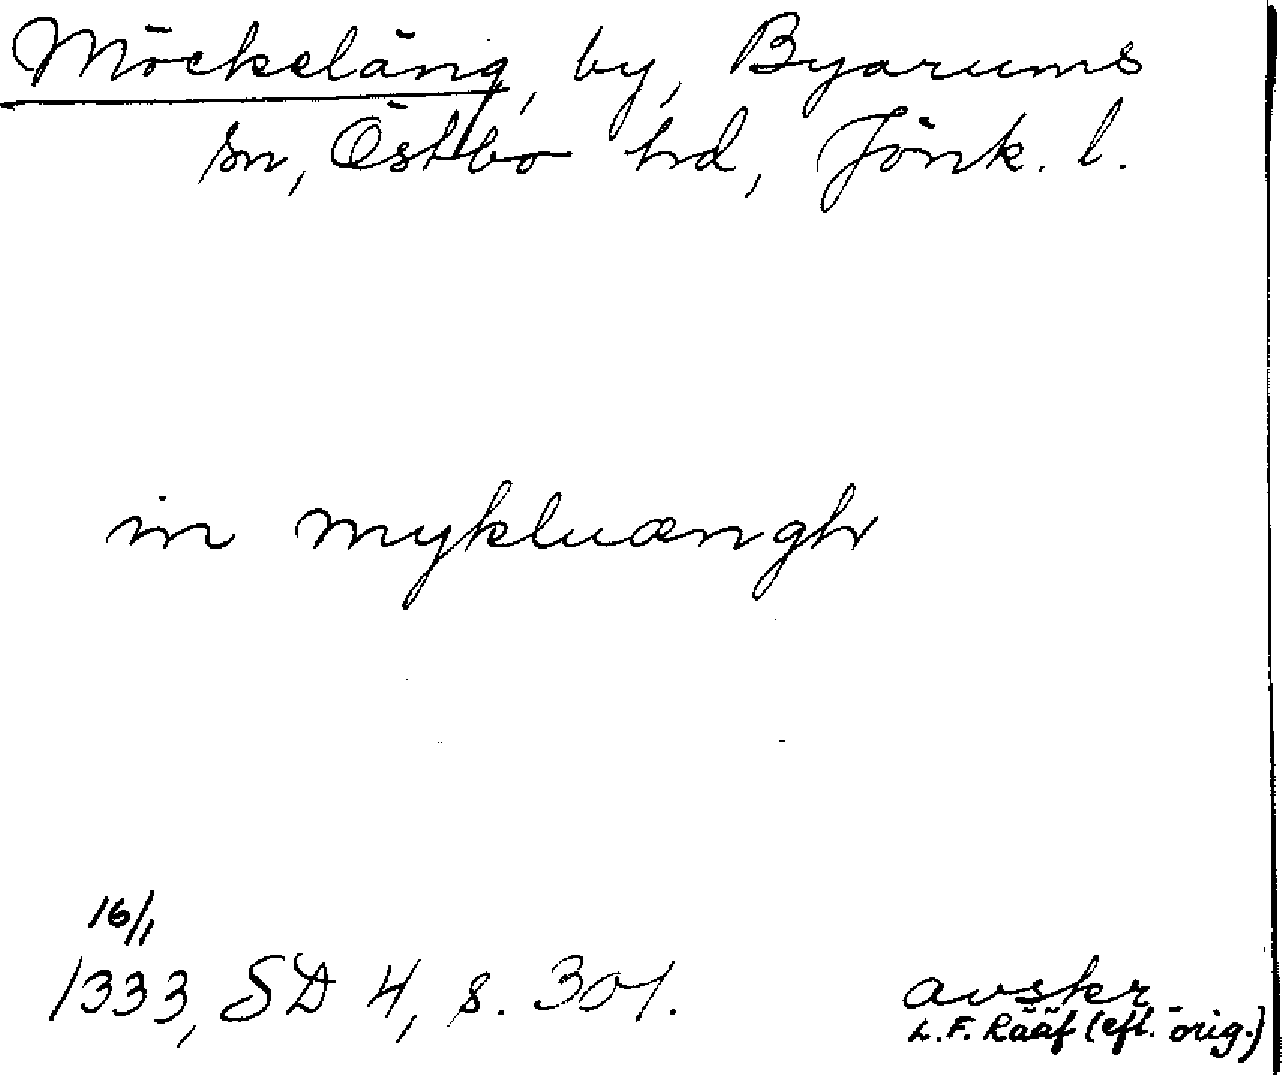 Möckeläng, by, Byarums
sn, Östbo hd, Jönk. l.
in mykluængh
16/1
1333, SD 4, s. 301.
avskr
L. F. Rääf (eft. orig.)